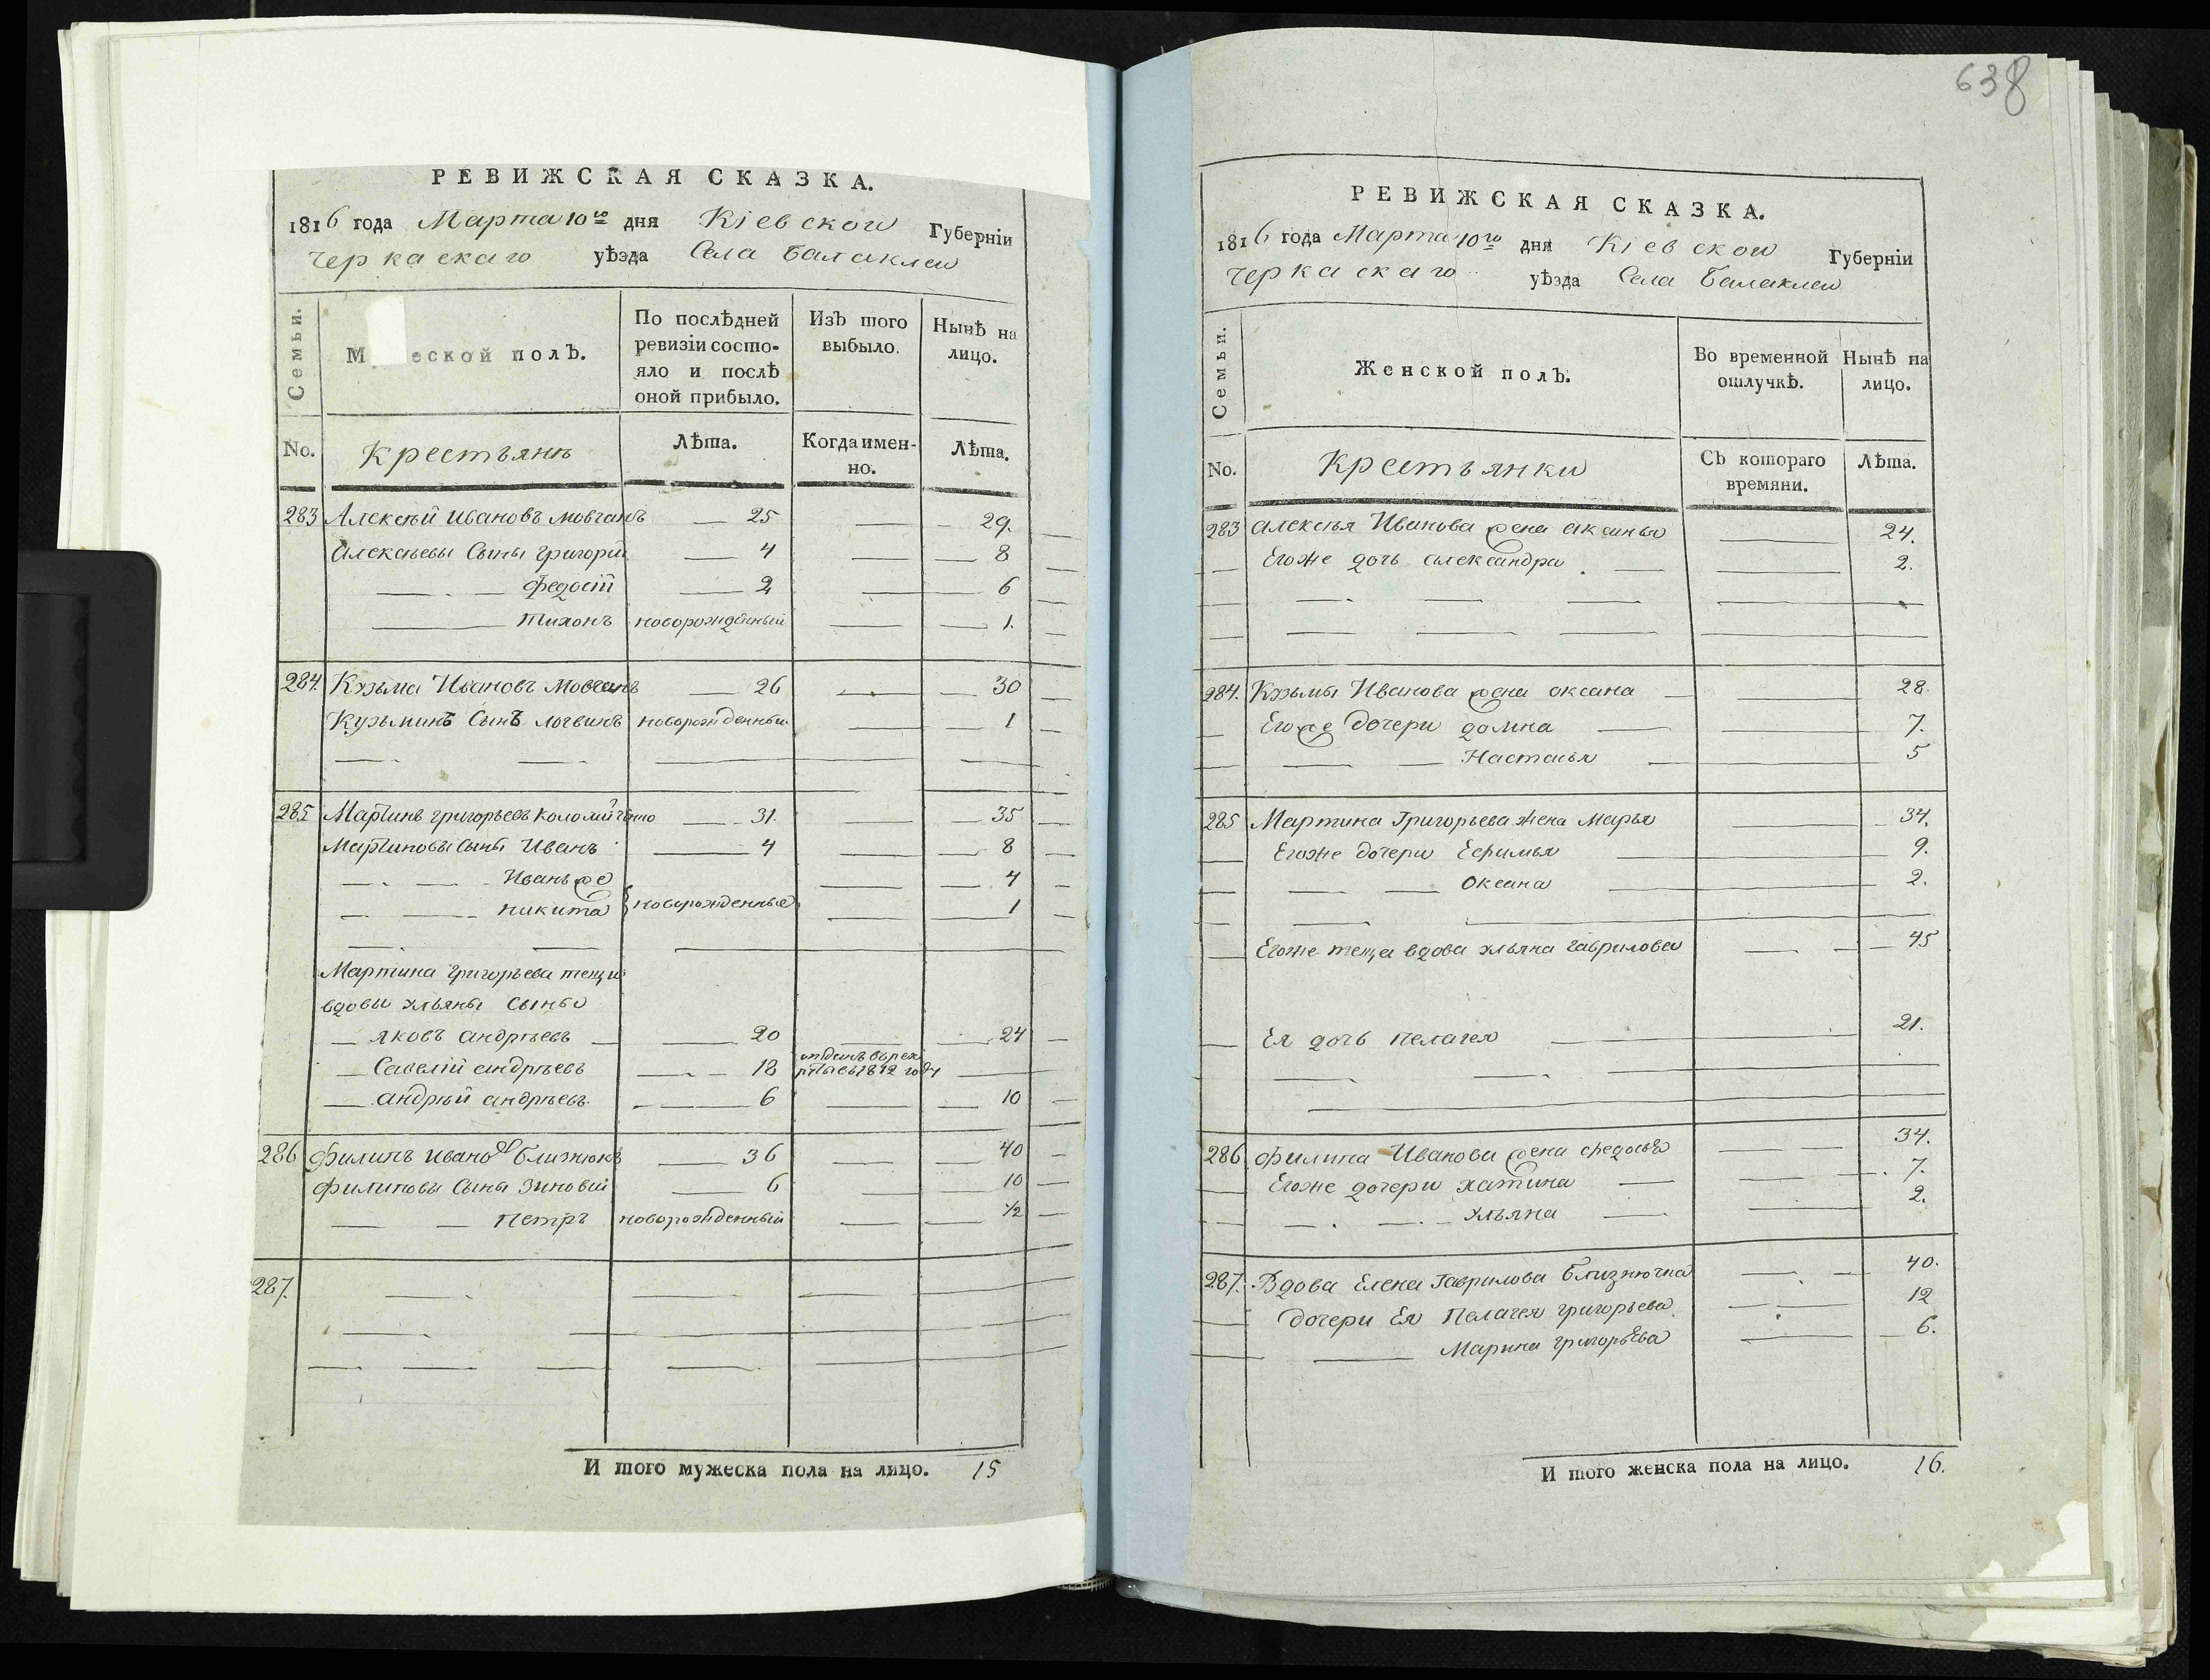 638
РЕВИЖСКАЯ СКАЗКА.
1816 года Марта 10го дня Кіевской Губерніи
Черкаскаго уѣзда Села Балаклеи
Семьи.
М еской полЪ.
По послѣдней ревизіи состояло и послѣ оной прибыло.
ИзЪ того выбыло.
Нынѣ на лицо.
No.
Крестьянѣ
Лѣта.
Когда именно.
Лѣта.
283 Алексѣй Ивановъ Мовчанъ 25 29.
Алексѣевы Сыны Григорій 4 8
Федосій 2 6
Тихонъ новорожденный 1.
284. Кузьма Ивановъ Мовчанъ 26 30
Кузьминъ Сынъ Логвинъ новорожденный 1
285 Мартинъ Григорьевъ Коломійченко 31 35
Мартиновы Сыны Иванъ 4 8
Иванъ же 4
Никита } новорожденные 1
Мартина Григорьева тещи
вдовы Ульяны Сыньв
Яковъ Андрѣевъ 20 24
Савелій Андрѣевъ 18 отданъ въ рекруты въ 1812 году
Андрѣй Андрѣевъ 6 10
286 Филипъ Ивановъ Близнюкъ 36 40
Филиповы Сыны Зиновій 6 10
Петръ новорожденный 1/2
287.
И того мужеска пола на лицо. 15
РЕВИЖСКАЯ СКАЗКА.
1816 года Марта 10го дня Кіевской Губерніи
Черкаскаго уѣзда Села Балаклеи
Семьи.
Женской полЪ.
Во временной отлучкѣ.
Нынѣ на лицо.
No.
Крестьянки
СЬ котораго времяни.
Лѣта.
283 Алексѣя Иванова жена Аксинья 24.
Егоже дочь Александра 2.
284. Кузьмы Иванова жена Оксана 28.
Егоже Дочери Домна 7.
Настасья 5
285 Мартина Григорьева жена Марья 34.
Егоже дочери Ефимья 9.
Оксана 2.
Егоже теща вдова Ульяна Гаврилова 45
Ея дочь Пелагея 21.
286. Филипа Иванова жена Федосья 34.
Егоже дочери 7.
Ульяна 2.
287. Вдова Елена Гаврилова Близнючка 40.
Дочери Ея Пелагея Григорьева 12
Марина Григорьева 6.
И того женска пола на лицо. 16.